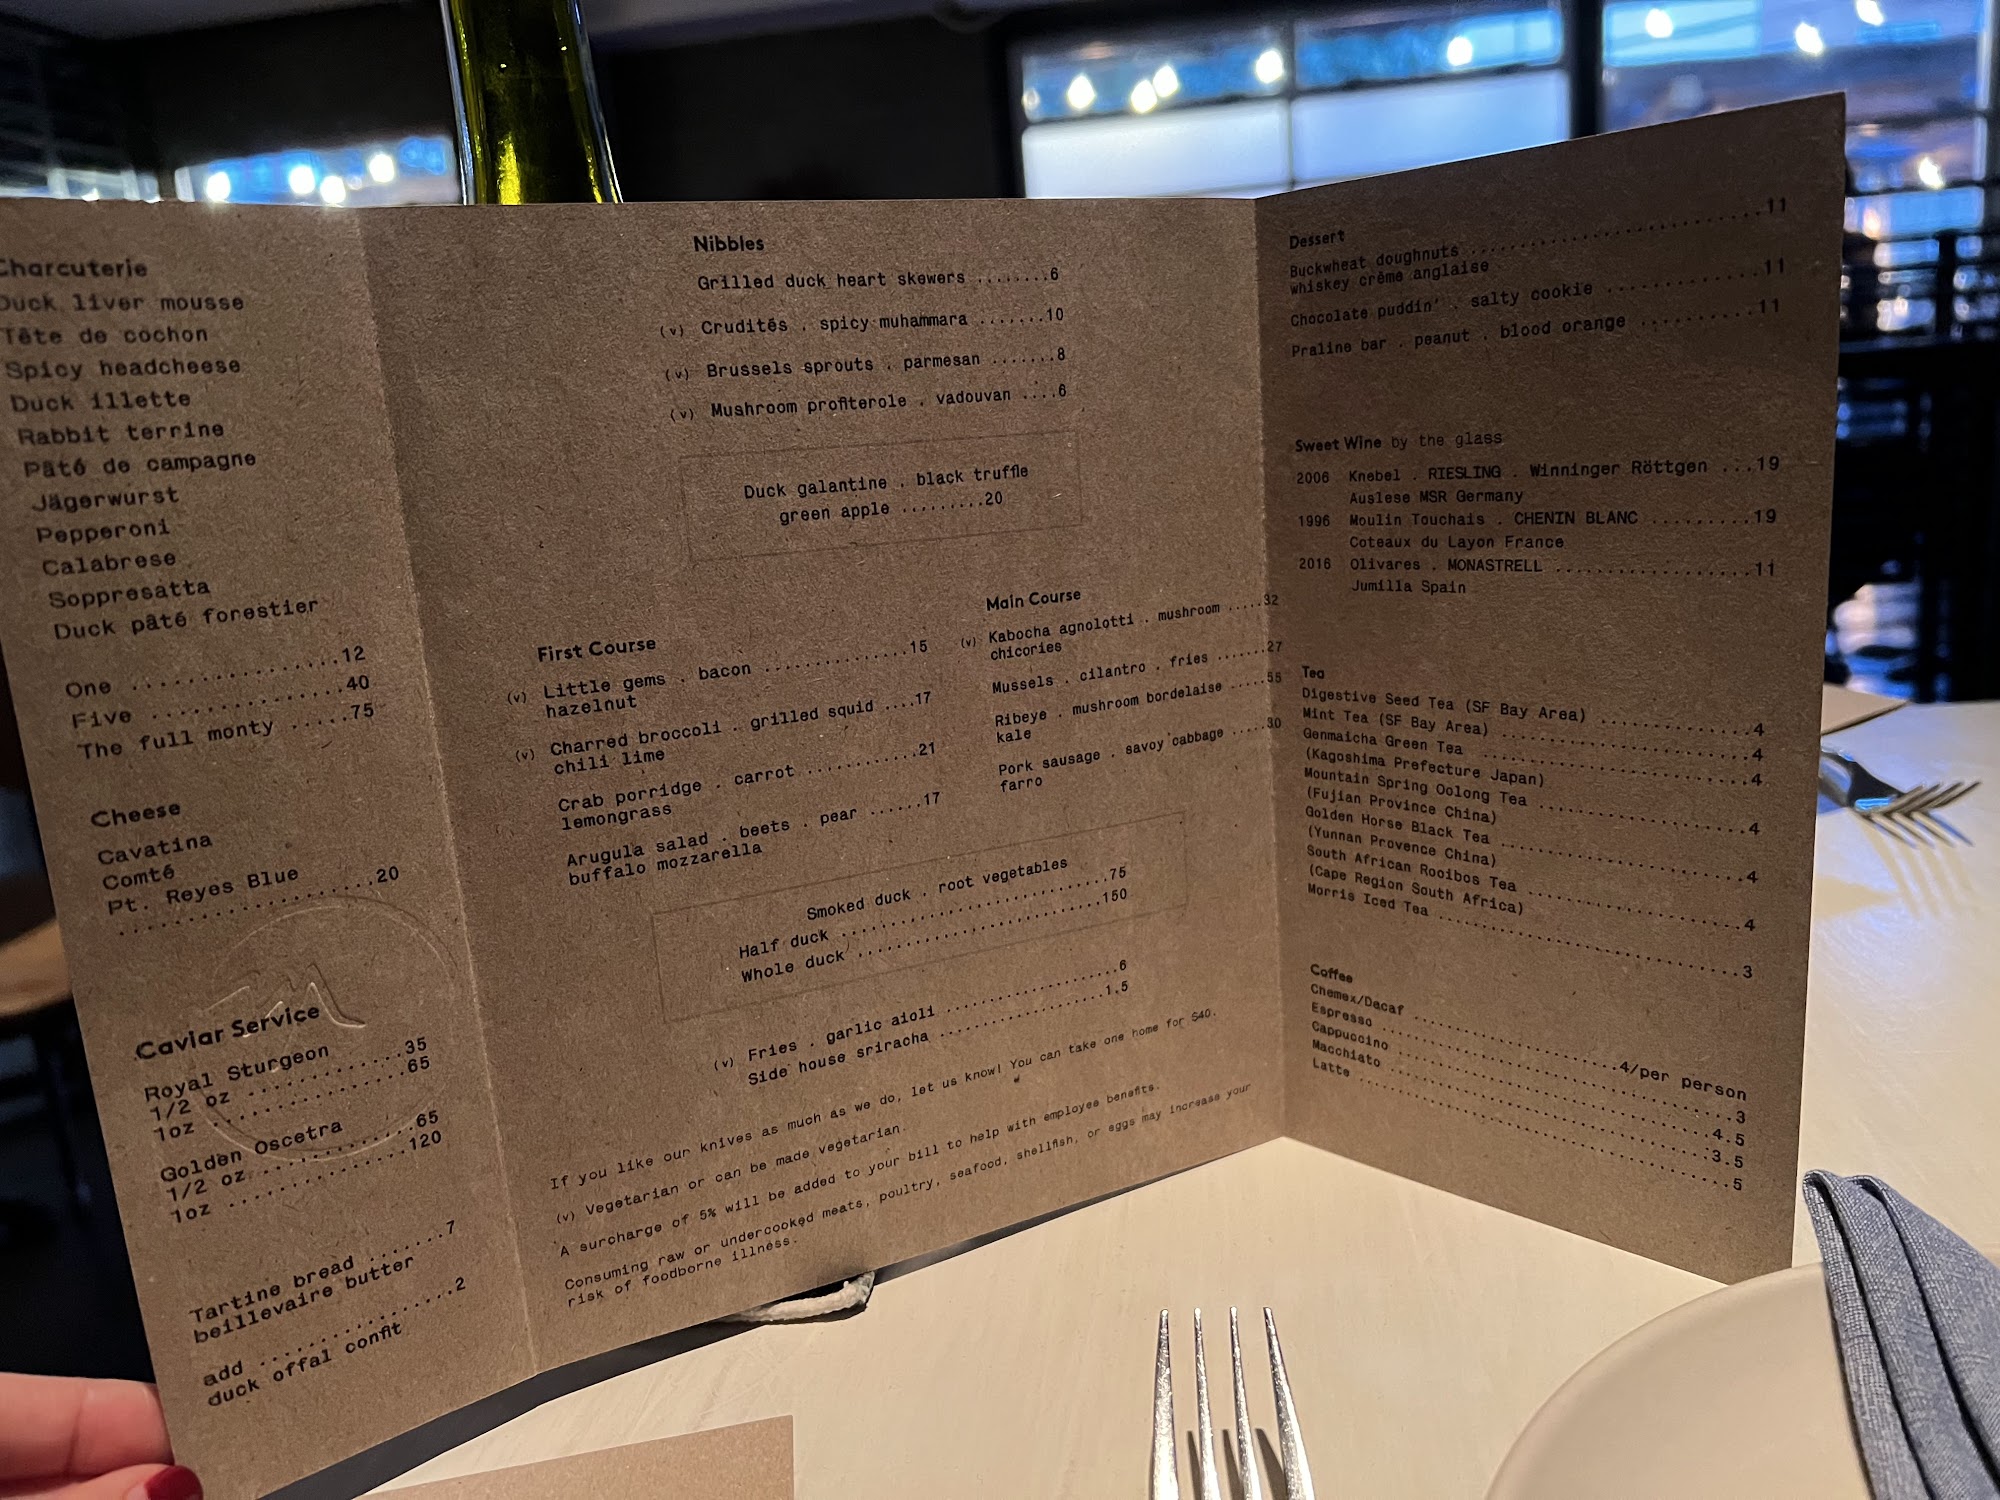 Charcuterie
Duck liver mousse
Tête de cochon
Spicy headcheese
Duck illette
Rabbit terrine
Pâté de campagne
Jägerwurst
Pepperoni
Calabrese
Soppresatta
Duck pâté forestier
One ...............12
Five ..............40
The full monty .....75
Cheese
Cavatina
Comté
Pt. Reyes Blue
..................20
Caviar Service
Royal Sturgeon
1/2 oz ............35
1oz ...............65
Golden Oscetra
1/2 oz ............65
1oz ..............120
Tartine bread .......7
beillevaire butter
add ................2
duck offal confit
Nibbles
Grilled duck heart skewers ........6
(v) Crudités . spicy muhammara .......10
(v) Brussels sprouts . parmesan .......8
(v) Mushroom profiterole . vadouvan ....6
Duck galantine . black truffle
green apple .........20
First Course
(v) Little gems . bacon ...............15
hazelnut
(v) Charred broccoli . grilled squid ....17
chili lime
Crab porridge . carrot ............21
lemongrass
Arugula salad . beets . pear ......17
buffalo mozzarella
Main Course
(v) Kabocha agnolotti . mushroom .....32
chicories
Mussels . cilantro . fries .......27
Ribeye . mushroom bordelaise .....55
kale
Pork sausage . savoy cabbage .....30
farro
Smoked duck . root vegetables
Half duck ..........................75
Whole duck ........................150
(v) Fries . garlic aioli ...................6
Side house sriracha ..................1.5
If you like our knives as much as we do, let us know! You can take one home for $40.
(v) Vegetarian or can be made vegetarian.
A surcharge of 5% will be added to your bill to help with employee benefits.
Consuming raw or undercooked meats, poultry, seafood, shellfish, or eggs may increase your
risk of foodborne illness.
Dessert
Buckwheat doughnuts ............................11
whiskey crème anglaise
Chocolate puddin' . salty cookie ...............11
Praline bar . peanut . blood orange ...........11
Sweet Wine by the glass
2006 Knebel . RIESLING . Winninger Röttgen ...19
Auslese MSR Germany
1996 Moulin Touchais . CHENIN BLANC .........19
Coteaux du Layon France
2016 Olivares . MONASTRELL ..................11
Jumilla Spain
Tea
Digestive Seed Tea (SF Bay Area) ..............4
Mint Tea (SF Bay Area) ........................4
Genmaicha Green Tea ...........................4
(Kagoshima Prefecture Japan)
Mountain Spring Oolong Tea ....................4
(Fujian Province China)
Golden Horse Black Tea ........................4
(Yunnan Provence China)
South African Rooibos Tea .....................4
(Cape Region South Africa)
Morris Iced Tea ...............................3
Coffee
Chemex/Decaf .....................4/per person
Espresso ......................................3
Cappuccino ..................................4.5
Macchiato ...................................3.5
Latte .........................................5